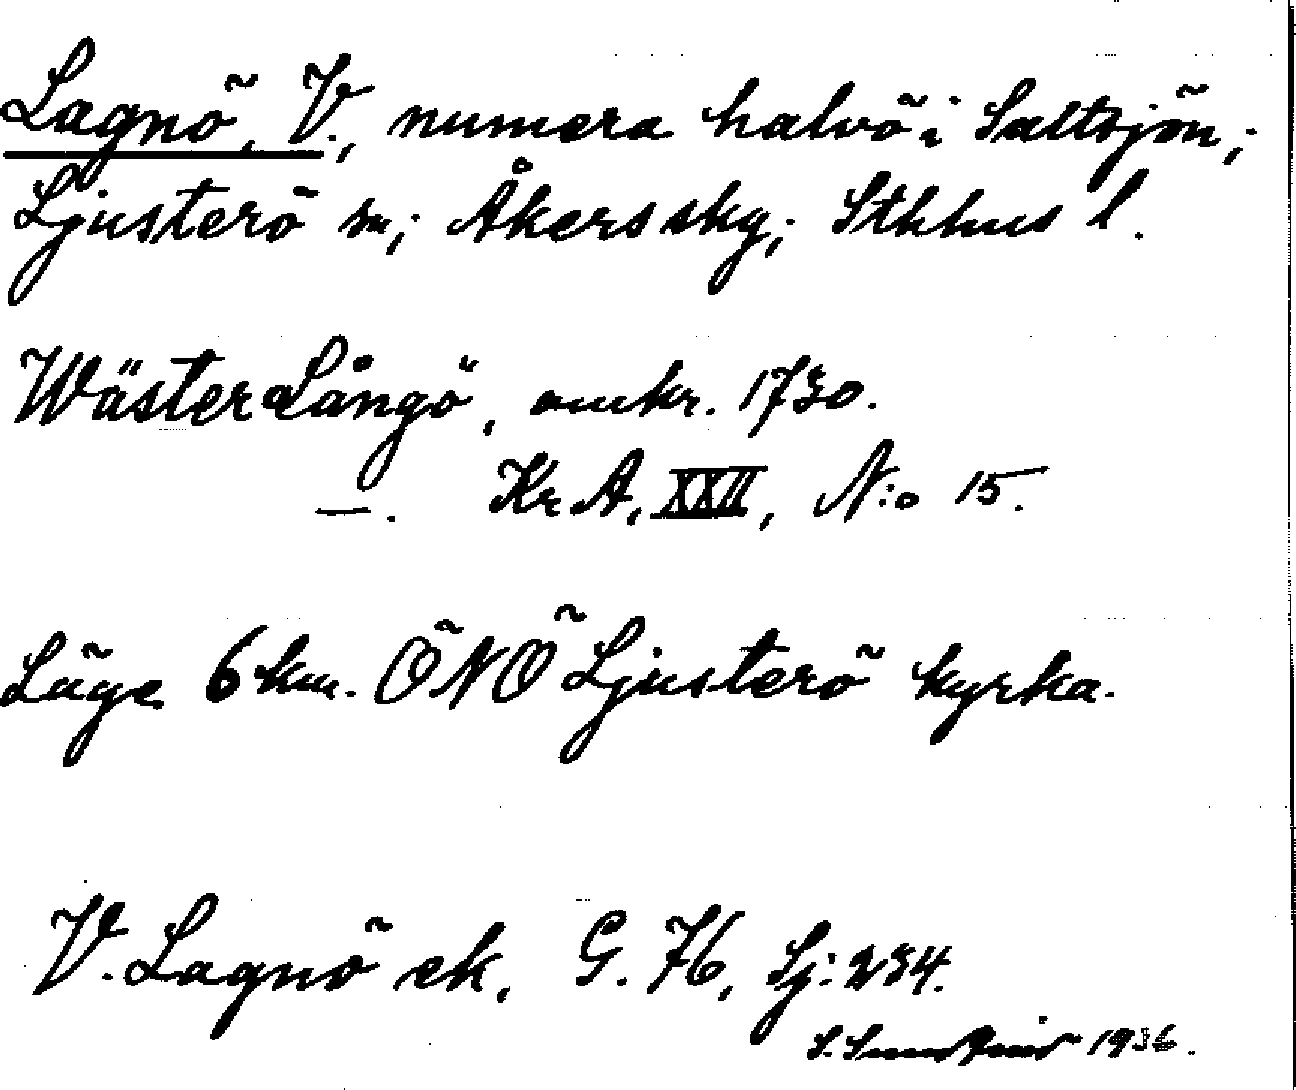 Lagnö, V., numera halvö i Saltsjön;
Ljusterö sn; Åkers skg; Sthlms l.
Wäster Långö, omkr. 1730.
—. KrA, XXII, N:o 15.
Läge 6 km. ÖNÖ Ljusterö kyrka.
V. Lagnö ek, G. 76, Lj: 234.
S. 1936.